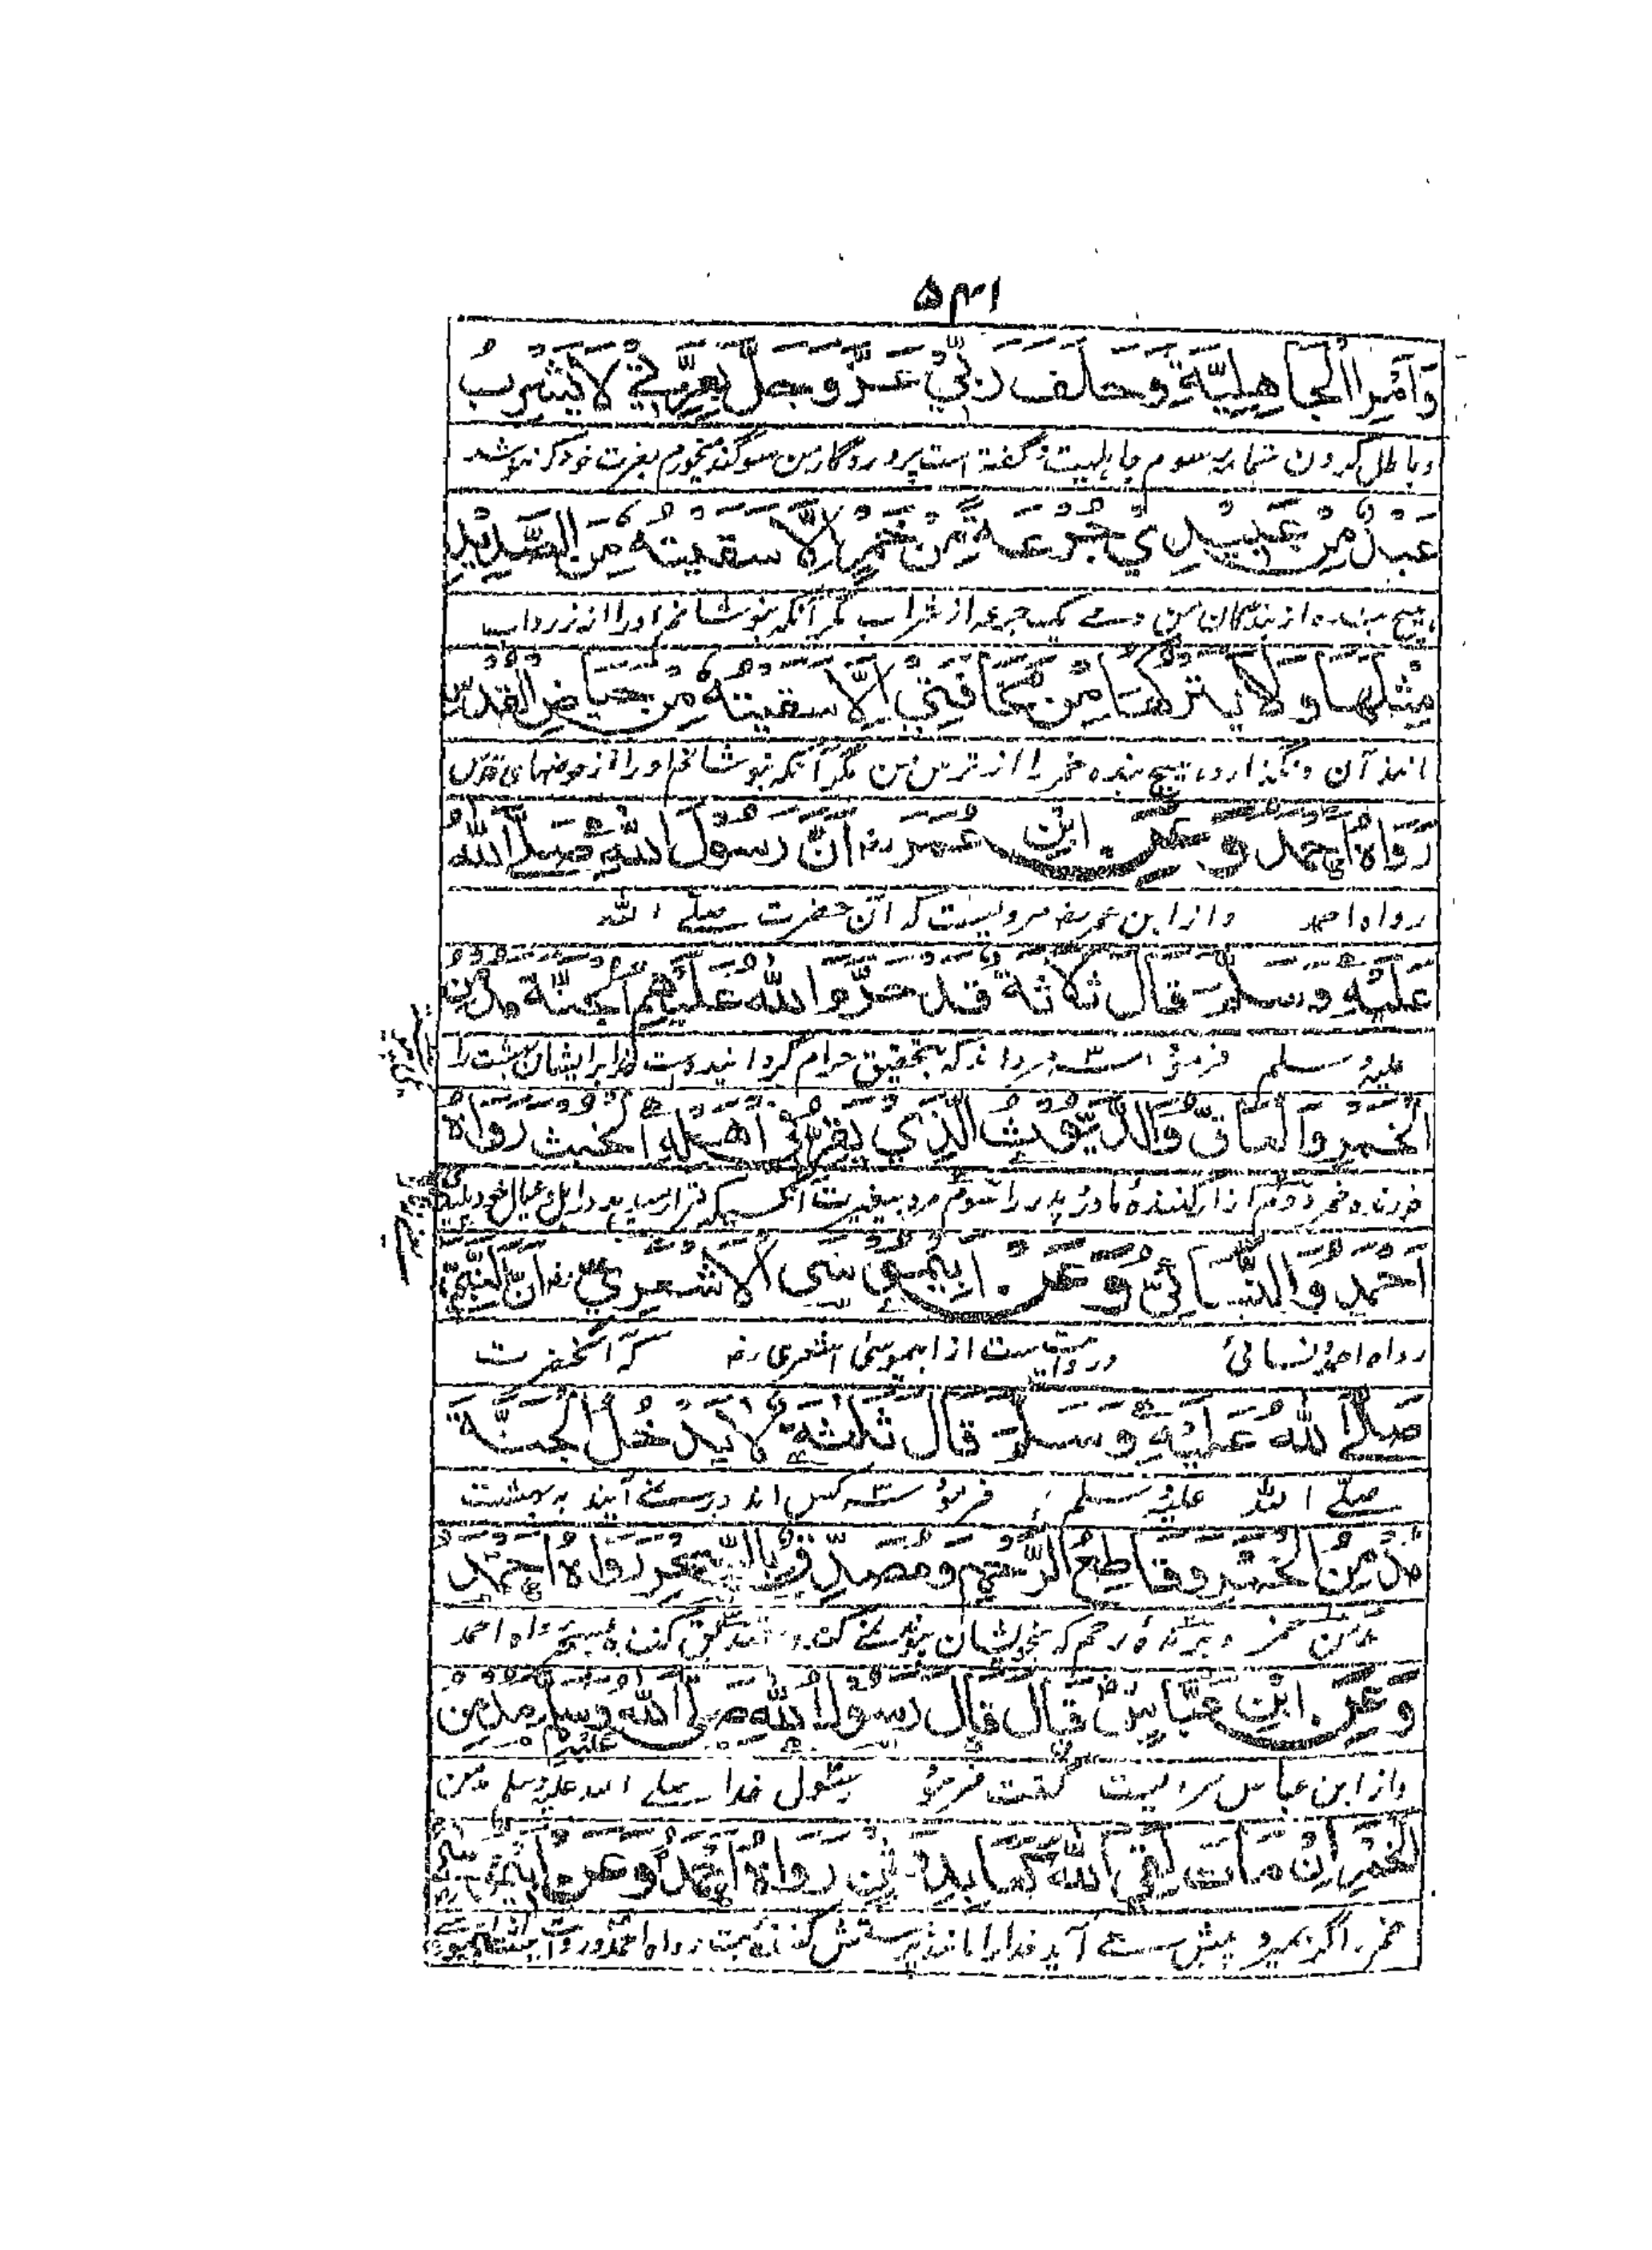 ۵۴۱
وَاَمْرُ الْجَاهِلِيَّةِ وَحَلَفَ رَبِّيْ عَزَّ وَجَلَّ بِعِزَّتِيْ لَا يَشْرَبُ
و باطل کردن رسوم جاهلیت و گفته است پروردگار من سوگند میخورم بعزت خود که ننوشد
عَبْدٌ مِّنْ عَبِيْدِيْ جُرْعَةً مِّنْ خَمْرٍ اِلَّا سَقَيْتُهُ مِنَ الصَّدِيْدِ
هیچ بنده از بندگان من یک جرعه از شراب مگر آنکه بنوشانم او را از زرداب
مِثْلَهَا وَلَا يَتْرُكُهَا مِنْ مَّخَافَتِيْ اِلَّا سَقَيْتُهُ مِنْ حِيَاضِ الْقُدُسِ
مانند آن و نگذارد هیچ بنده خمر را از ترس من مگر آنکه بنوشانم او را از حوضهای قدس
رَوَاهُ اَحْمَدُ وَعَنِ ابْنِ عُمَرَ رض اَنَّ رَسُوْلَ اللهِ صَلَّى اللهُ
رواه احمد و از ابن عمر رض مرویست که آن حضرت صلے الله
عَلَيْهِ وَسَلَّمَ قَالَ ثَلَاثَةٌ قَدْ حَرَّمَ اللهُ عَلَيْهِمُ الْجَنَّةَ مُدْمِنُ
علیه وسلم فرمود سه مرد اند که بتحقیق حرام گردانیده است خدا بر ایشان بهشت را
الْخَمْرِ وَالْعَاقُّ وَالدَّيُّوْثُ الَّذِيْ يُقِرُّ فِيْ اَهْلِهِ الْخُبْثَ رَوَاهُ
خورنده خمر دوم آزار کننده مادر و پدر را سوم مرد بیغیرت آنکس که قرار میدهد در اهل و عیال خود
اَحْمَدُ وَالنَّسَائِيُّ وَعَنْ اَبِيْ مُوْسَى الْاَشْعَرِيِّ رض اَنَّ النَّبِيَّ
رواه احمد و نسائی و روایت است از ابی موسی اشعری رض که آنحضرت
صَلَّى اللهُ عَلَيْهِ وَسَلَّمَ قَالَ ثَلٰثَةٌ لَا يَدْخُلُ الْجَنَّةَ
صلے الله علیه وسلم فرمود سه کس اند در نمے آیند به بهشت
مُدْمِنُ الْخَمْرِ وَقَاطِعُ الرَّحِمِ وَمُصَدِّقٌ بِالسِّحْرِ رَوَاهُ اَحْمَدُ
مدمن خمر و برنده رحم که بخویشان پیوند نمے کند و تصدیق کننده بسحر رواه احمد
وَعَنِ ابْنِ عَبَّاسٍ رض قَالَ قَالَ رَسُوْلُ اللهِ صَلَّى اللهُ عَلَيْهِ وَسَلَّمَ مُدْمِنُ
و از ابن عباس مرویست گفت فرمود رسول خدا صلے الله علیه وسلم مدمن
الْخَمْرِ اِنْ مَاتَ لَقِيَ اللهَ كَعَابِدِ وَثَنٍ رَوَاهُ اَحْمَدُ وَعَنْ اَبِيْ مُوْسٰى
خمر اگر بمیرد پیش مے آید خدا را مانند پرستش کننده بت رواه احمد و روایت است از ابی موسی